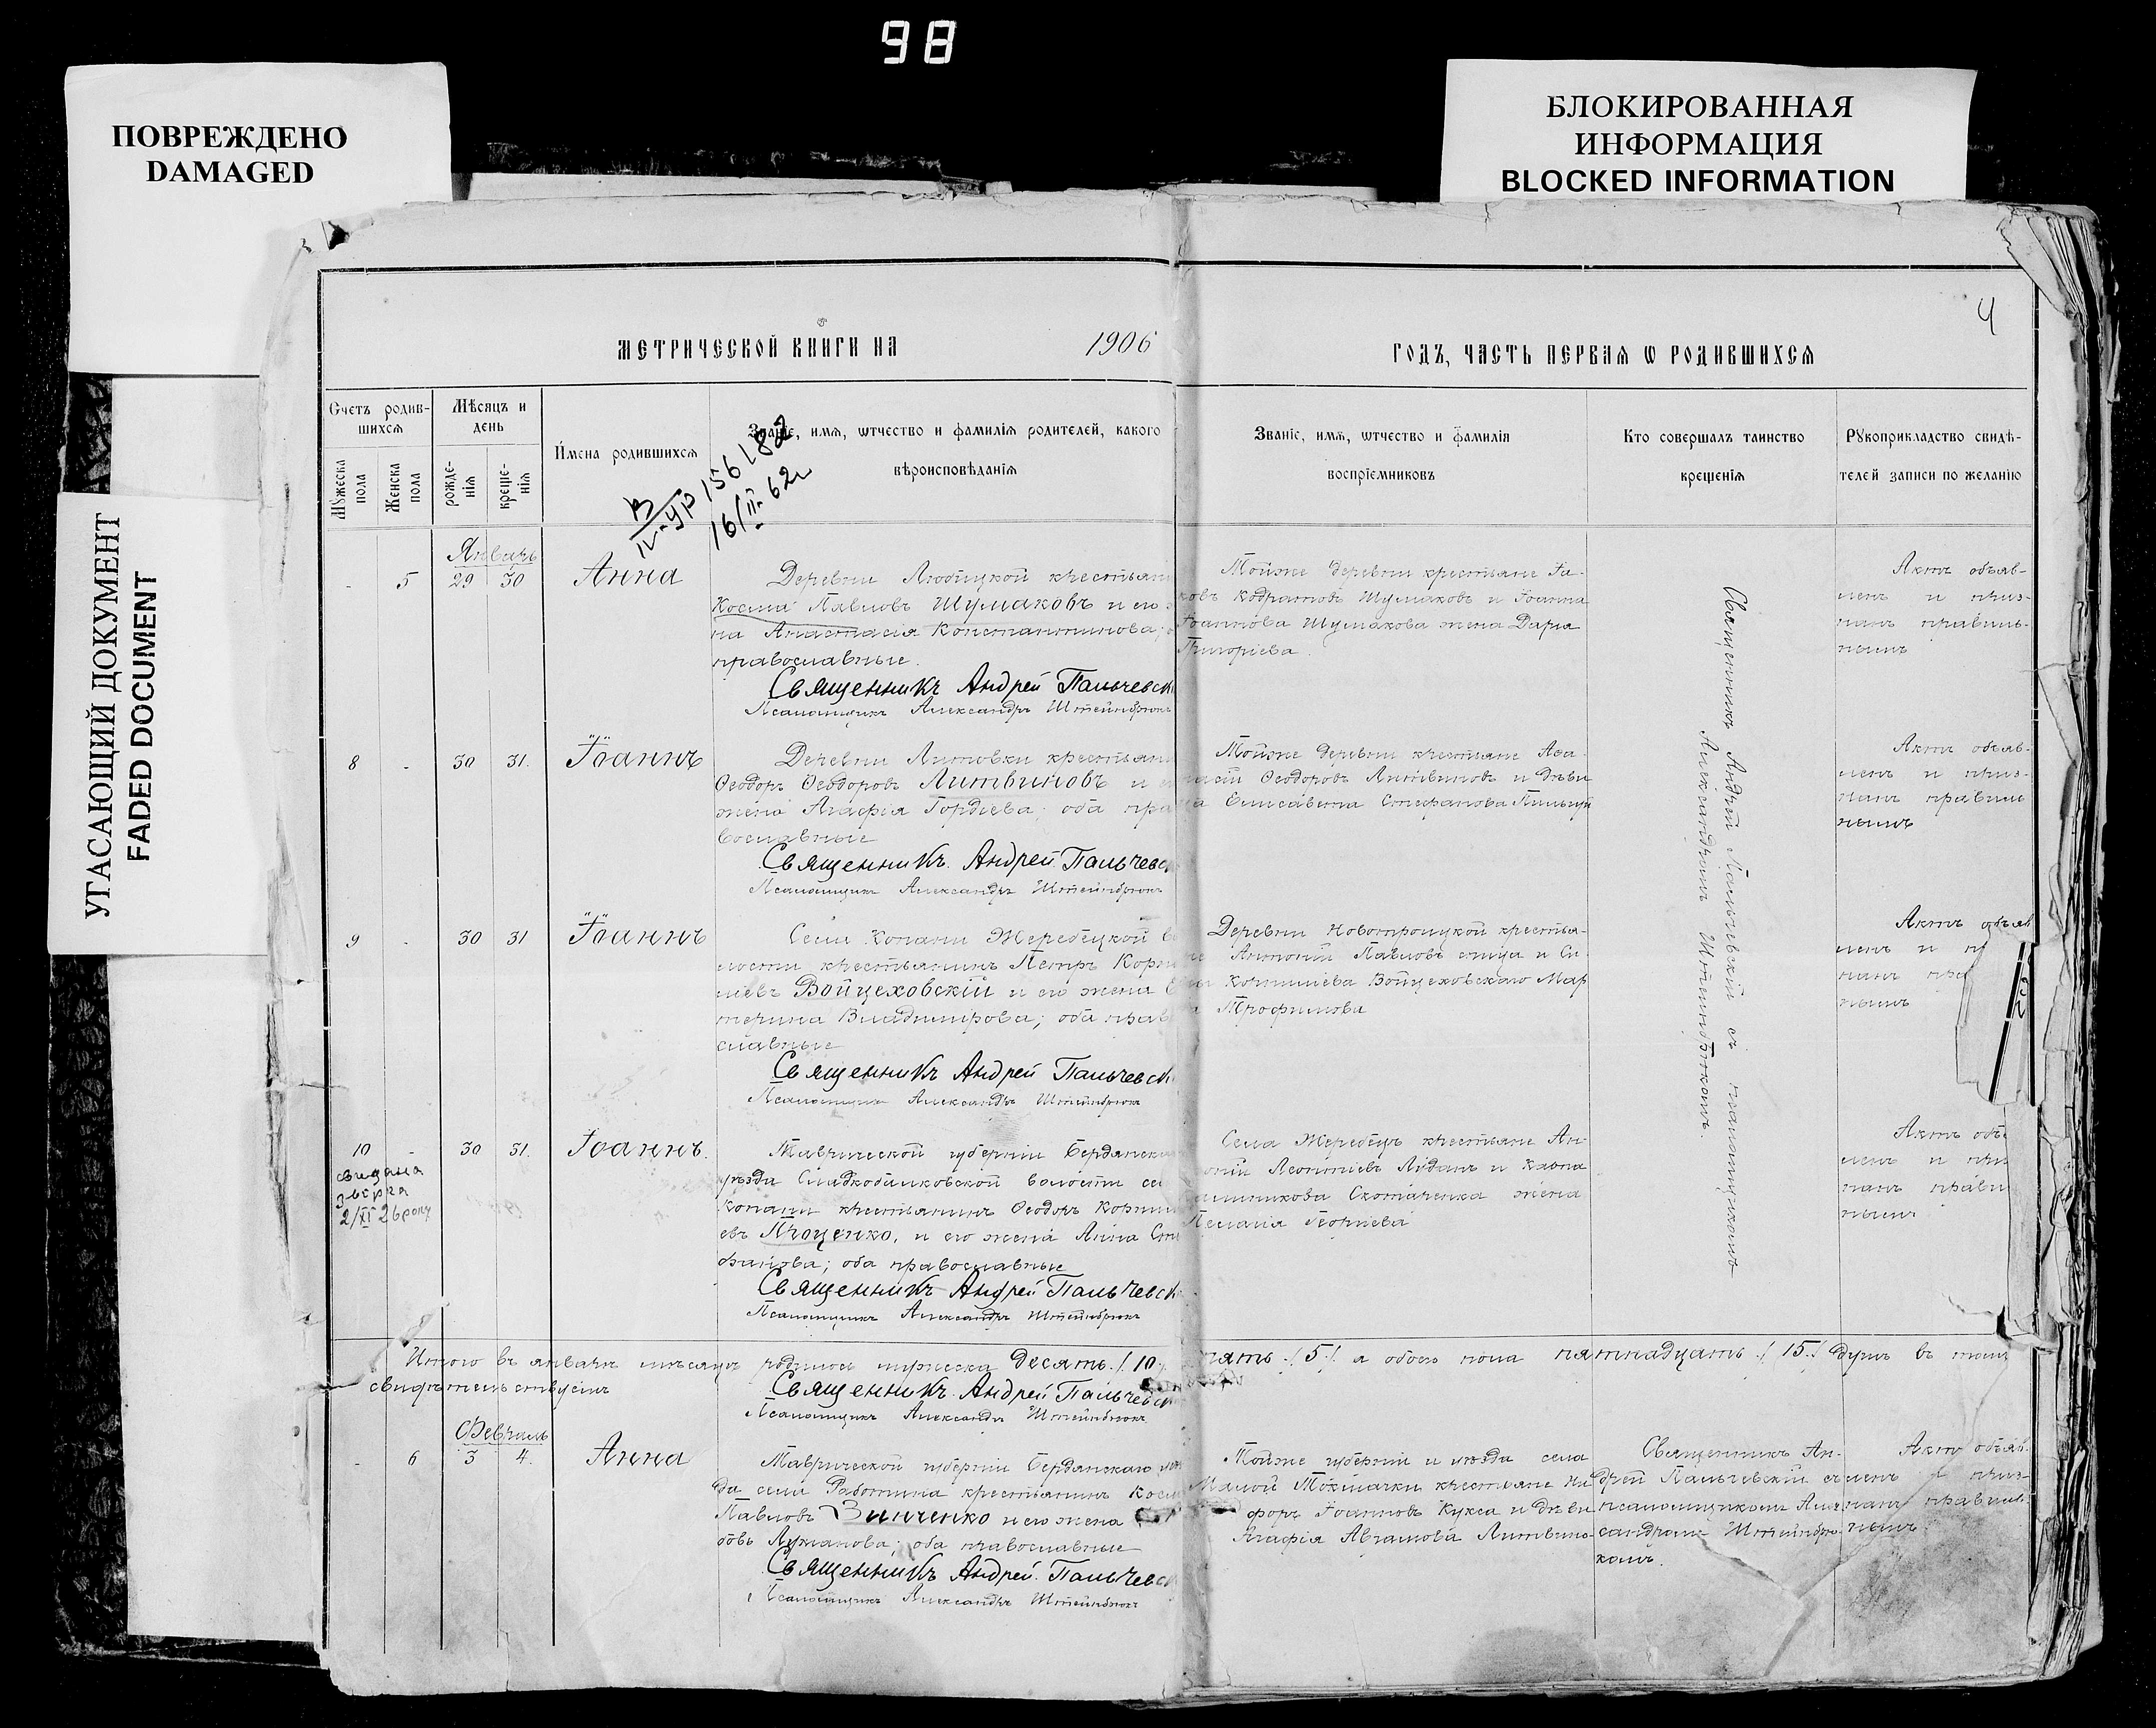 98
ПОВРЕЖДЕНО
DAMAGED
БЛОКИРОВАННАЯ
ИНФОРМАЦИЯ
BLOCKED INFORMATION
УГАСАЮЩИЙ ДОКУМЕНТ
FADED DOCUMENT
4
МЕТРИЧЕСКОЙ КНИГИ НА 1906
ГОДЪ, ЧАСТЬ ПЕРВАѦ Ѡ РОДИВШИХСѦ
Счетъ родив-
шихсѧ
Мѣсяцъ и
день
Мужеска
пола
Женска
пола
рожде-
нїѧ
креще-
нїѧ
Имена родившихсѧ
Званїе, имѧ, ѡтчество и фамилїѧ родителей, какого
вѣроисповѣданїѧ
Званїе, имѧ, ѡтчество и фамилїѧ
воспрїемниковъ
Кто совершалъ таинство
крещенїѧ
Рꙋкоприкладство свидѣ-
телей записи по желанїю
156182
16/II-62г
Январь
- 5 29 30 Анна
Деревни Любицкой крестьян
Косма Павловъ Шумаковъ и его
на Анастасія Константинова;
православные.
Священникъ Андрей Пальчевск
Псаломщикъ Александръ Штейнбрюкъ
Тойже деревни крестьяне Іа-
ковъ Кодратовъ Шумаковъ и Іоанна
Іоаннова Шумакова жена Дарія
Григоріева.
Актъ объяв-
ленъ и приз-
нанъ правиль-
нымъ
8 - 30 31. Іоаннъ
Деревни Литовки крестьян
Ѳеодоръ Ѳеодоровъ Литвиновъ и
жена Агафія Гордіева; оба пра
вославные
Священникъ. Андрей Пальчевск
Псаломщикъ Александръ Штейнбрюкъ
Тойже деревни крестьяне Аѳа-
насій Ѳеодоровъ Литвиновъ и дѣви
ца Елисавета Стефанова
Актъ объяв-
ленъ и приз-
нанъ правиль
нымъ
9 - 30 31 Іоаннъ
Села Копани Жеребецкой во
лости крестьянинъ Петръ Корни
ліевъ Войцеховскій и его жена
терина Владимірова; оба прав
славные
Священникъ Андрей Пальчевск
Псаломщикъ Александръ Штейнбрюкъ
Деревни Новотроицкой крестья-
не Антоній Павловъ и
Корниліева Войцеховскаго Мар
Трофимова
Актъ объяв
ленъ и пр
нанъ пра
нымъ
10 - 30 31. Іоаннъ.
свидана
2/XI 26 року
Таврической губерніи Бердянска
уѣзда Сладкобалковской волости се
Копани крестьянинъ Ѳеодоръ Корнил
евъ Проценко, и его жена Анна Сте
фанова; оба православные
Священникъ Андрей Пальчевск
Псаломщикъ Александръ Штейнбрюкъ
Села Жеребецъ крестьяне Ан-
тоній Леонтіевъ и
Скотаренка жена
Пелагія Георгіева
Актъ объ
ленъ и при
нанъ прави
нымъ
Священникъ Андрей Пальчевскій съ псаломщикомъ
Александромъ Штейнбрюкомъ.
Итого въ январѣ мѣсяцѣ родилось мужеска десять /10/
пять /5/ а обоего пола пятнадцать /15/ душъ въ томъ
свидѣтельствуемъ
Священникъ. Андрей Пальчевск
Псаломщикъ Александръ Штейнбрюкъ
Февраль
- 6 3 4. Анна
Таврической губерніи Бердянскаго уѣз
да села Работина крестьянинъ Косма
Павловъ Зинченко и его жена
овь Лукианова; оба православные
Священникъ Андрей. Пальчевск
Псаломщикъ Александръ Штейнбрюкъ
Тойже губерніи и уѣзда села
Малой Токмачки крестьяне Ни
форъ Іоанновъ Кукса и дѣви
Агафія Аврамова Литвино-
Священникъ Ан-
дрей Пальчевскій съ
псаломщикомъ Алек
сандромъ Штейнбрю-
комъ.
Актъ объяв-
ленъ и приз-
нанъ правиль-
нымъ